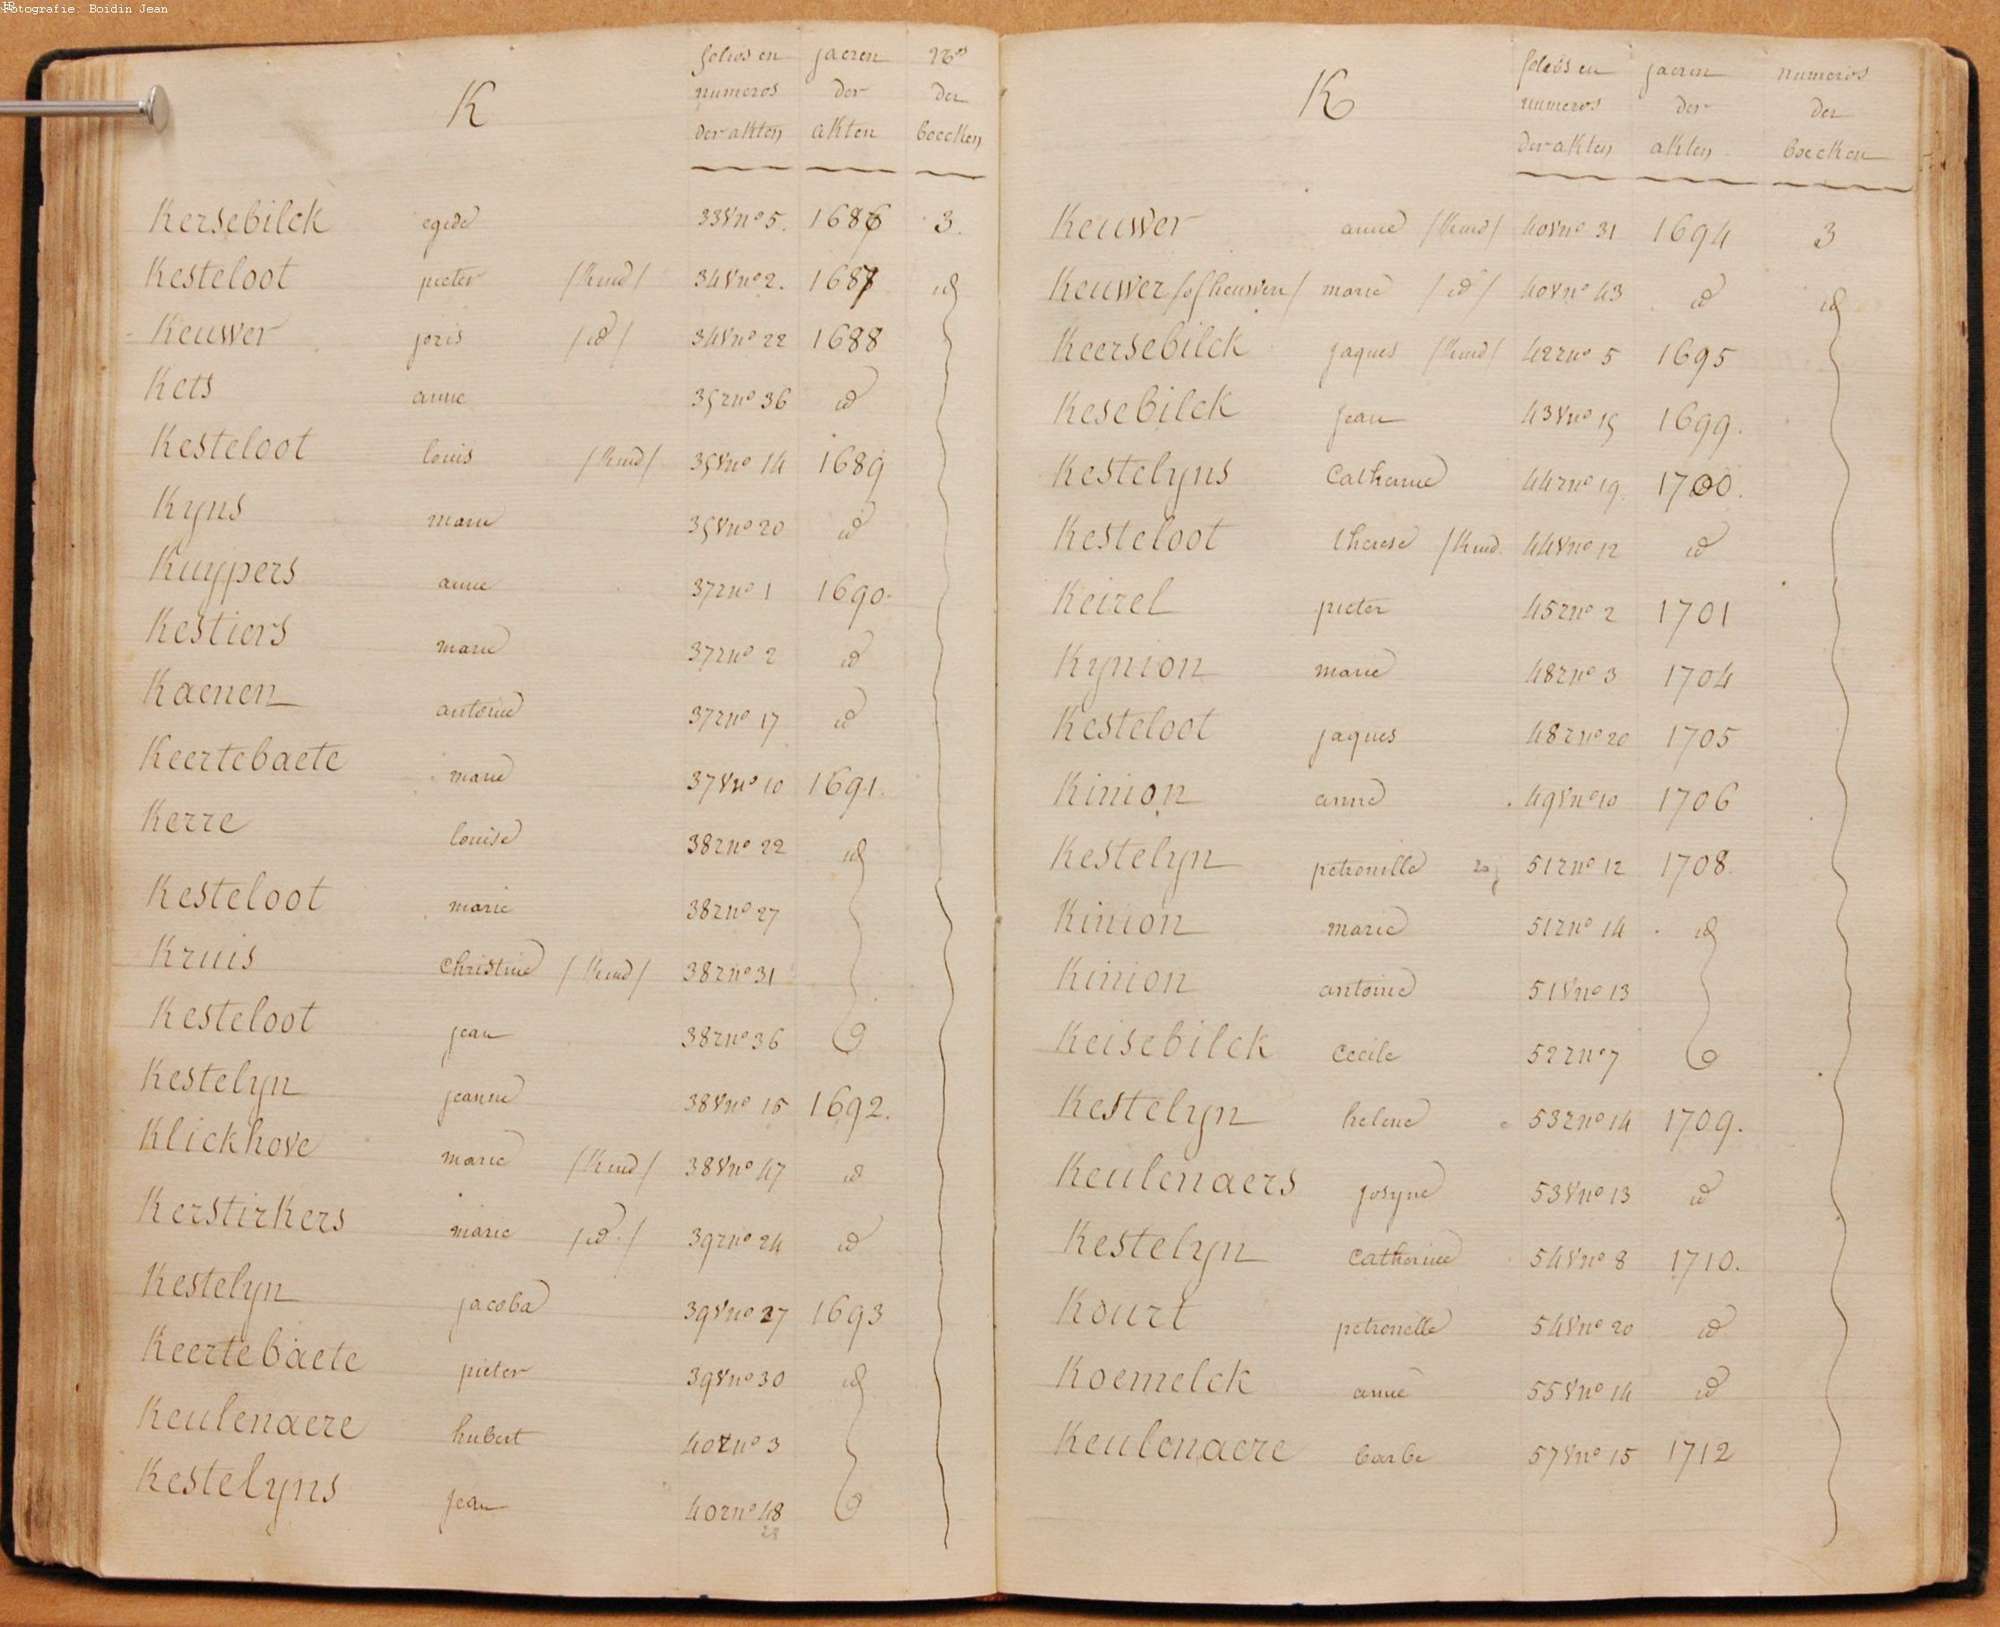 Fotografie: Boidin Jean
K
folios en jaeren Nos
numeros der der
der akten akten boecken
Kersebilck egide 33V no 5. 1686 3.
Kesteloot pieter /kind/ 34V no 2. 1687 id
Keuwer joris /id/ 34V no 22 1688
Kets anne 35r no 36 id
Kesteloot louis /kind/ 35V no 14 1689
Kyns marie 35V no 20 id
Kuypers anne 37r no 1 1690.
Kestiers marie 37r no 2 id
Kaenen antoine 37r no 17 id
Keertebaete marie 37V no 10 1691.
Kerre louise 38r no 22 id
Kesteloot marie 38r no 27
Kruis christine /kind/ 38r no 31
Kesteloot jean 38r no 36
Kestelyn jeanne 38V no 15 1692.
Klickhove marie /kind/ 38V no 47 id
Kerstirkers marie /id/ 39r no 24 id
Kestelyn jacoba 39V no 27 1693
Keertebaete pieter 39V no 30 id
Keulenaere hubert 40r no 3
Kestelyns jean 40r no 48
28
K
folios en jaeren numeros
numeros der der
der akten akten boecken
Keuwer anne /kind/ 40V no 31 1694 3
Keuwer /of heuwen/ marie /id/ 40V no 43 id id
Keersebilck jaques /kind/ 42r no 5 1695
Kesebilck jean 43V no 15 1699.
Kestelyns Catherine 44r no 19. 1700.
Kesteloot therese /kind. 44V no 12 id
Keirel pieter 45r no 2 1701
Kynion marie 48r no 3 1704
Kesteloot jaques 48r no 20 1705
Kinion anne 49V no 10 1706
Kestelyn petronille 51r no 12 1708
Kinion marie 51r no 14 id
Kinion antoine 51V no 13
Keisebilck Cecile 52r no 7
Kestelyn helene 53r no 14 1709.
Keulenaers josyne 53V no 13 id
Kestelyn Catherine 54V no 8 1710.
Kourt petronelle 54V no 20 id
Koemelck anne 55V no 14 id
Keulenaere barbe 57V no 15 1712